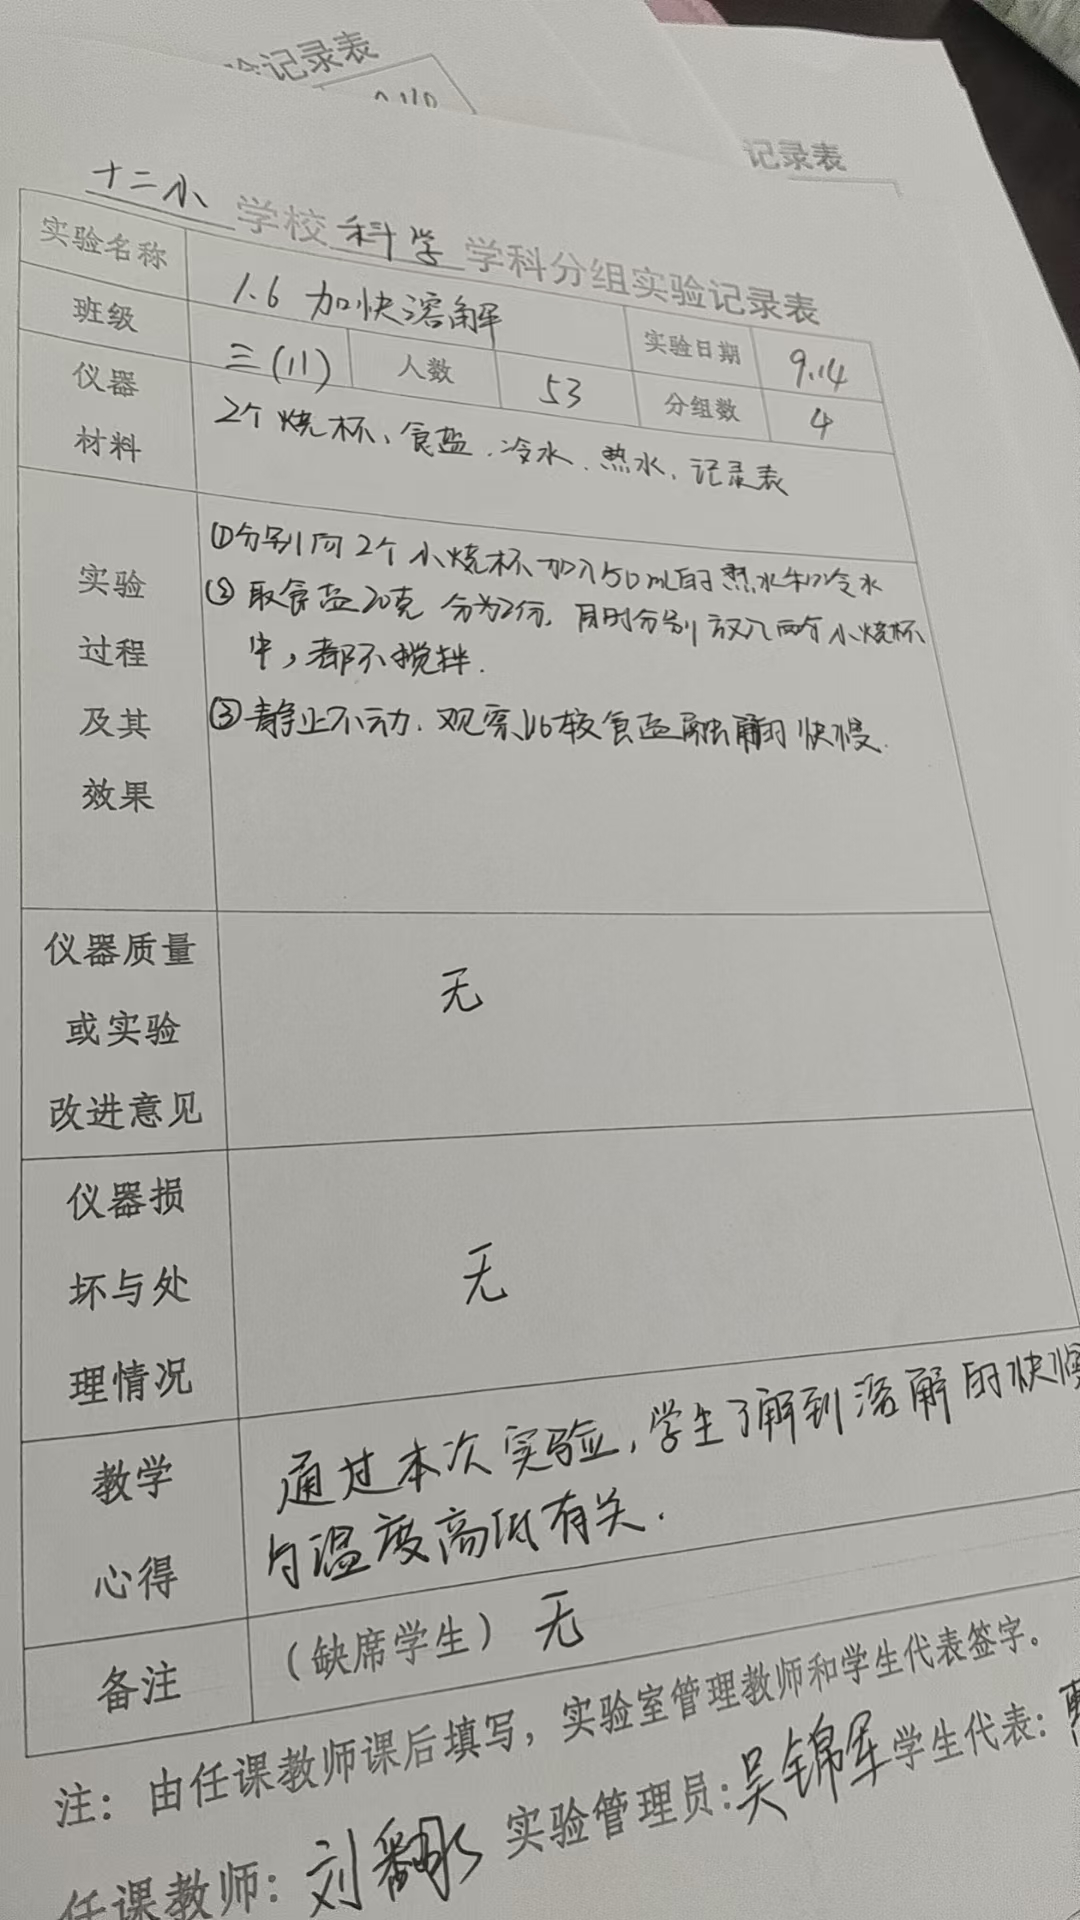 验记录表
记录表
十二小 学校 科学 学科分组实验记录表
实验名称 1.6 加快溶解 实验日期 9.14
班级 三(11) 人数 53 分组数 4
仪器
材料
2个烧杯、食盐、冷水、热水、记录表
实验
过程
及其
效果
①分别向2个小烧杯加入50mL的热水和冷水
②取食盐20克 分为2份,同时分别放入两个小烧杯
中,都不搅拌.
③静止不动.观察比较食盐融解的快慢.
仪器质量
或实验
改进意见
无
仪器损
坏与处
理情况
无
教学
心得
通过本次实验,学生了解到溶解的快慢
与温度高低有关.
备注 (缺席学生) 无
注:由任课教师课后填写,实验室管理教师和学生代表签字。
任课教师: 刘 实验管理员:吴锦军 学生代表: